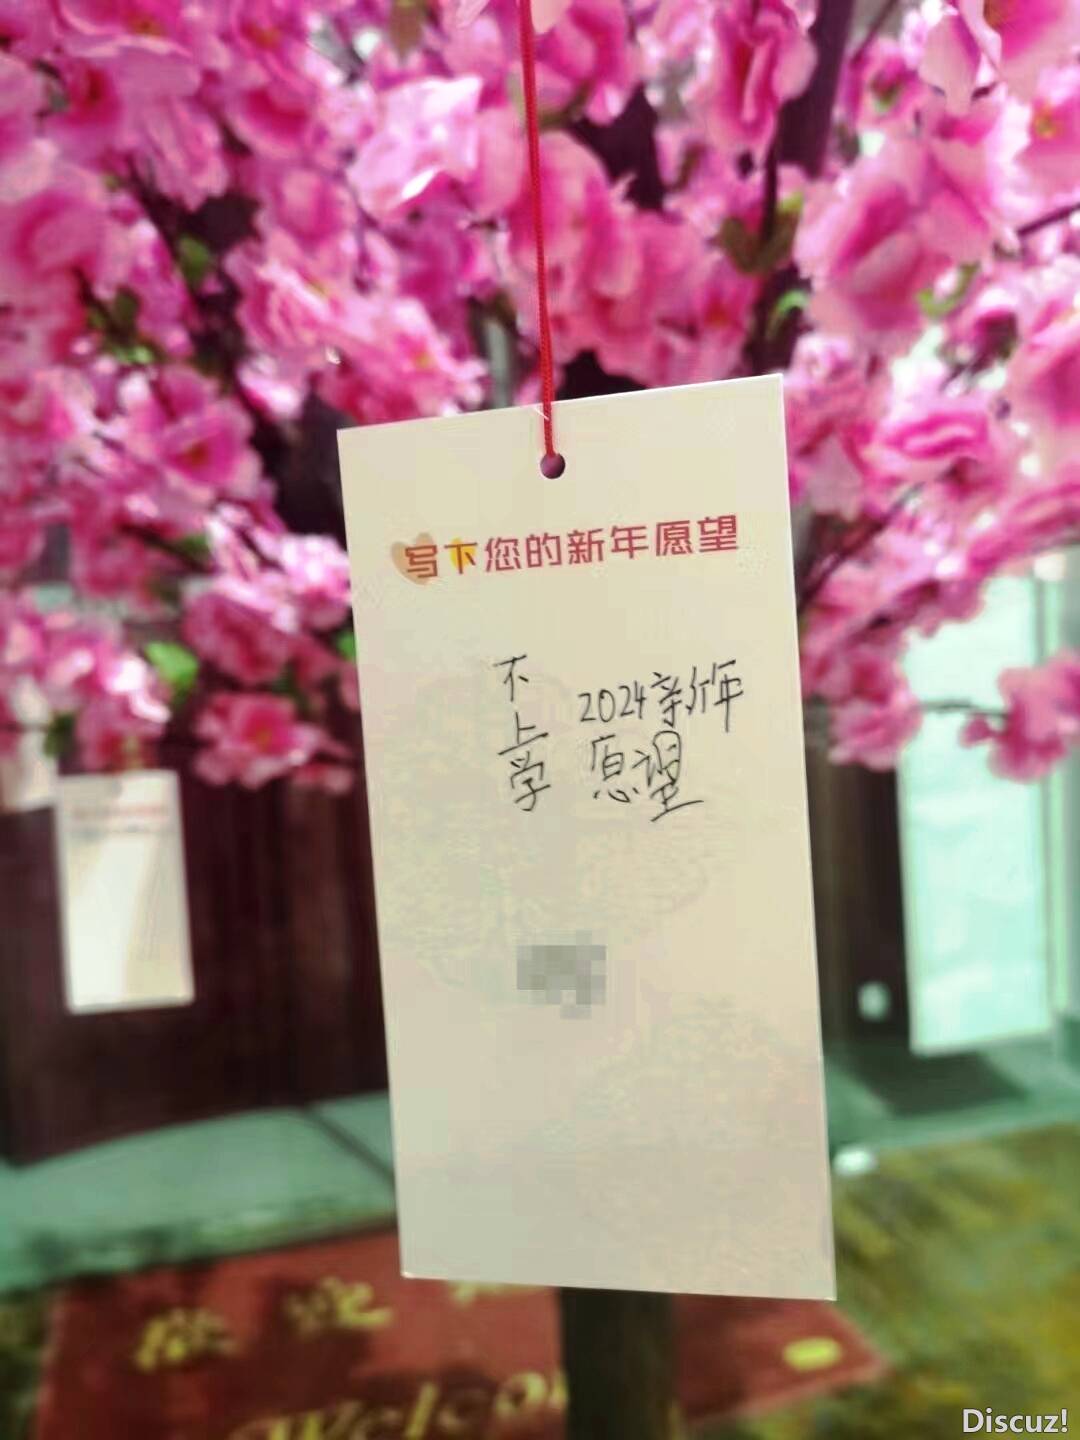 写下您的新年愿望
2024新年
愿望
不上学
欢迎
Welcom
Discuz!